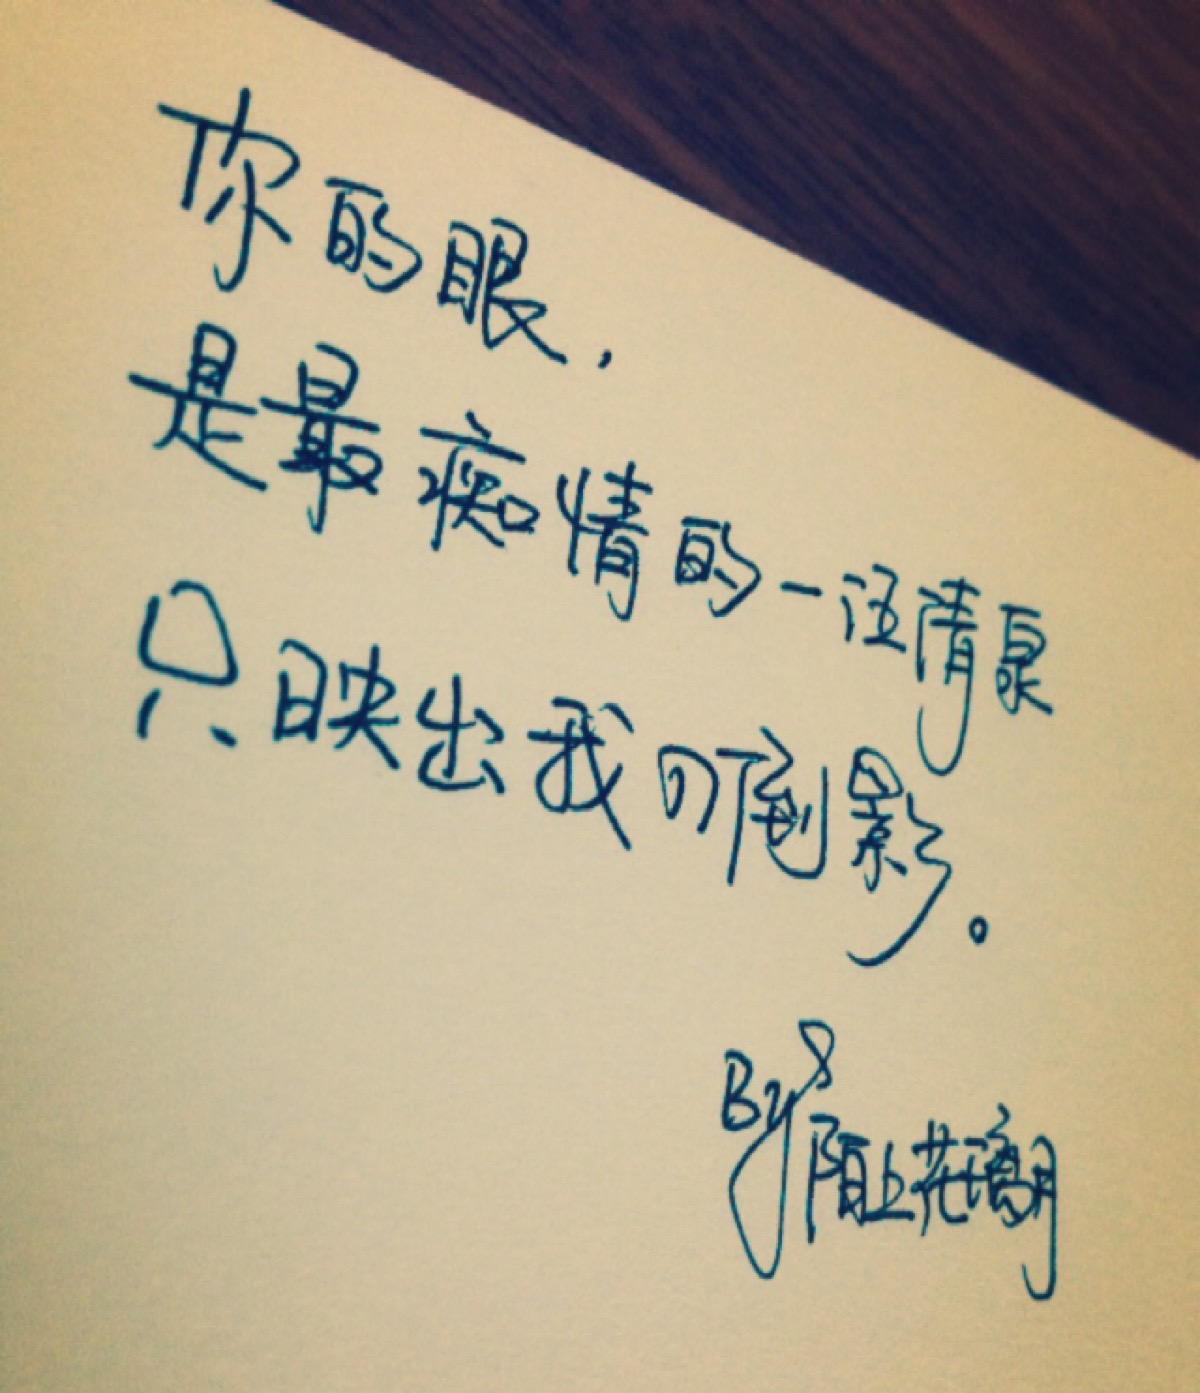 你的眼，
是最痴情的一汪清泉
只映出我的倒影。
By
陌上花